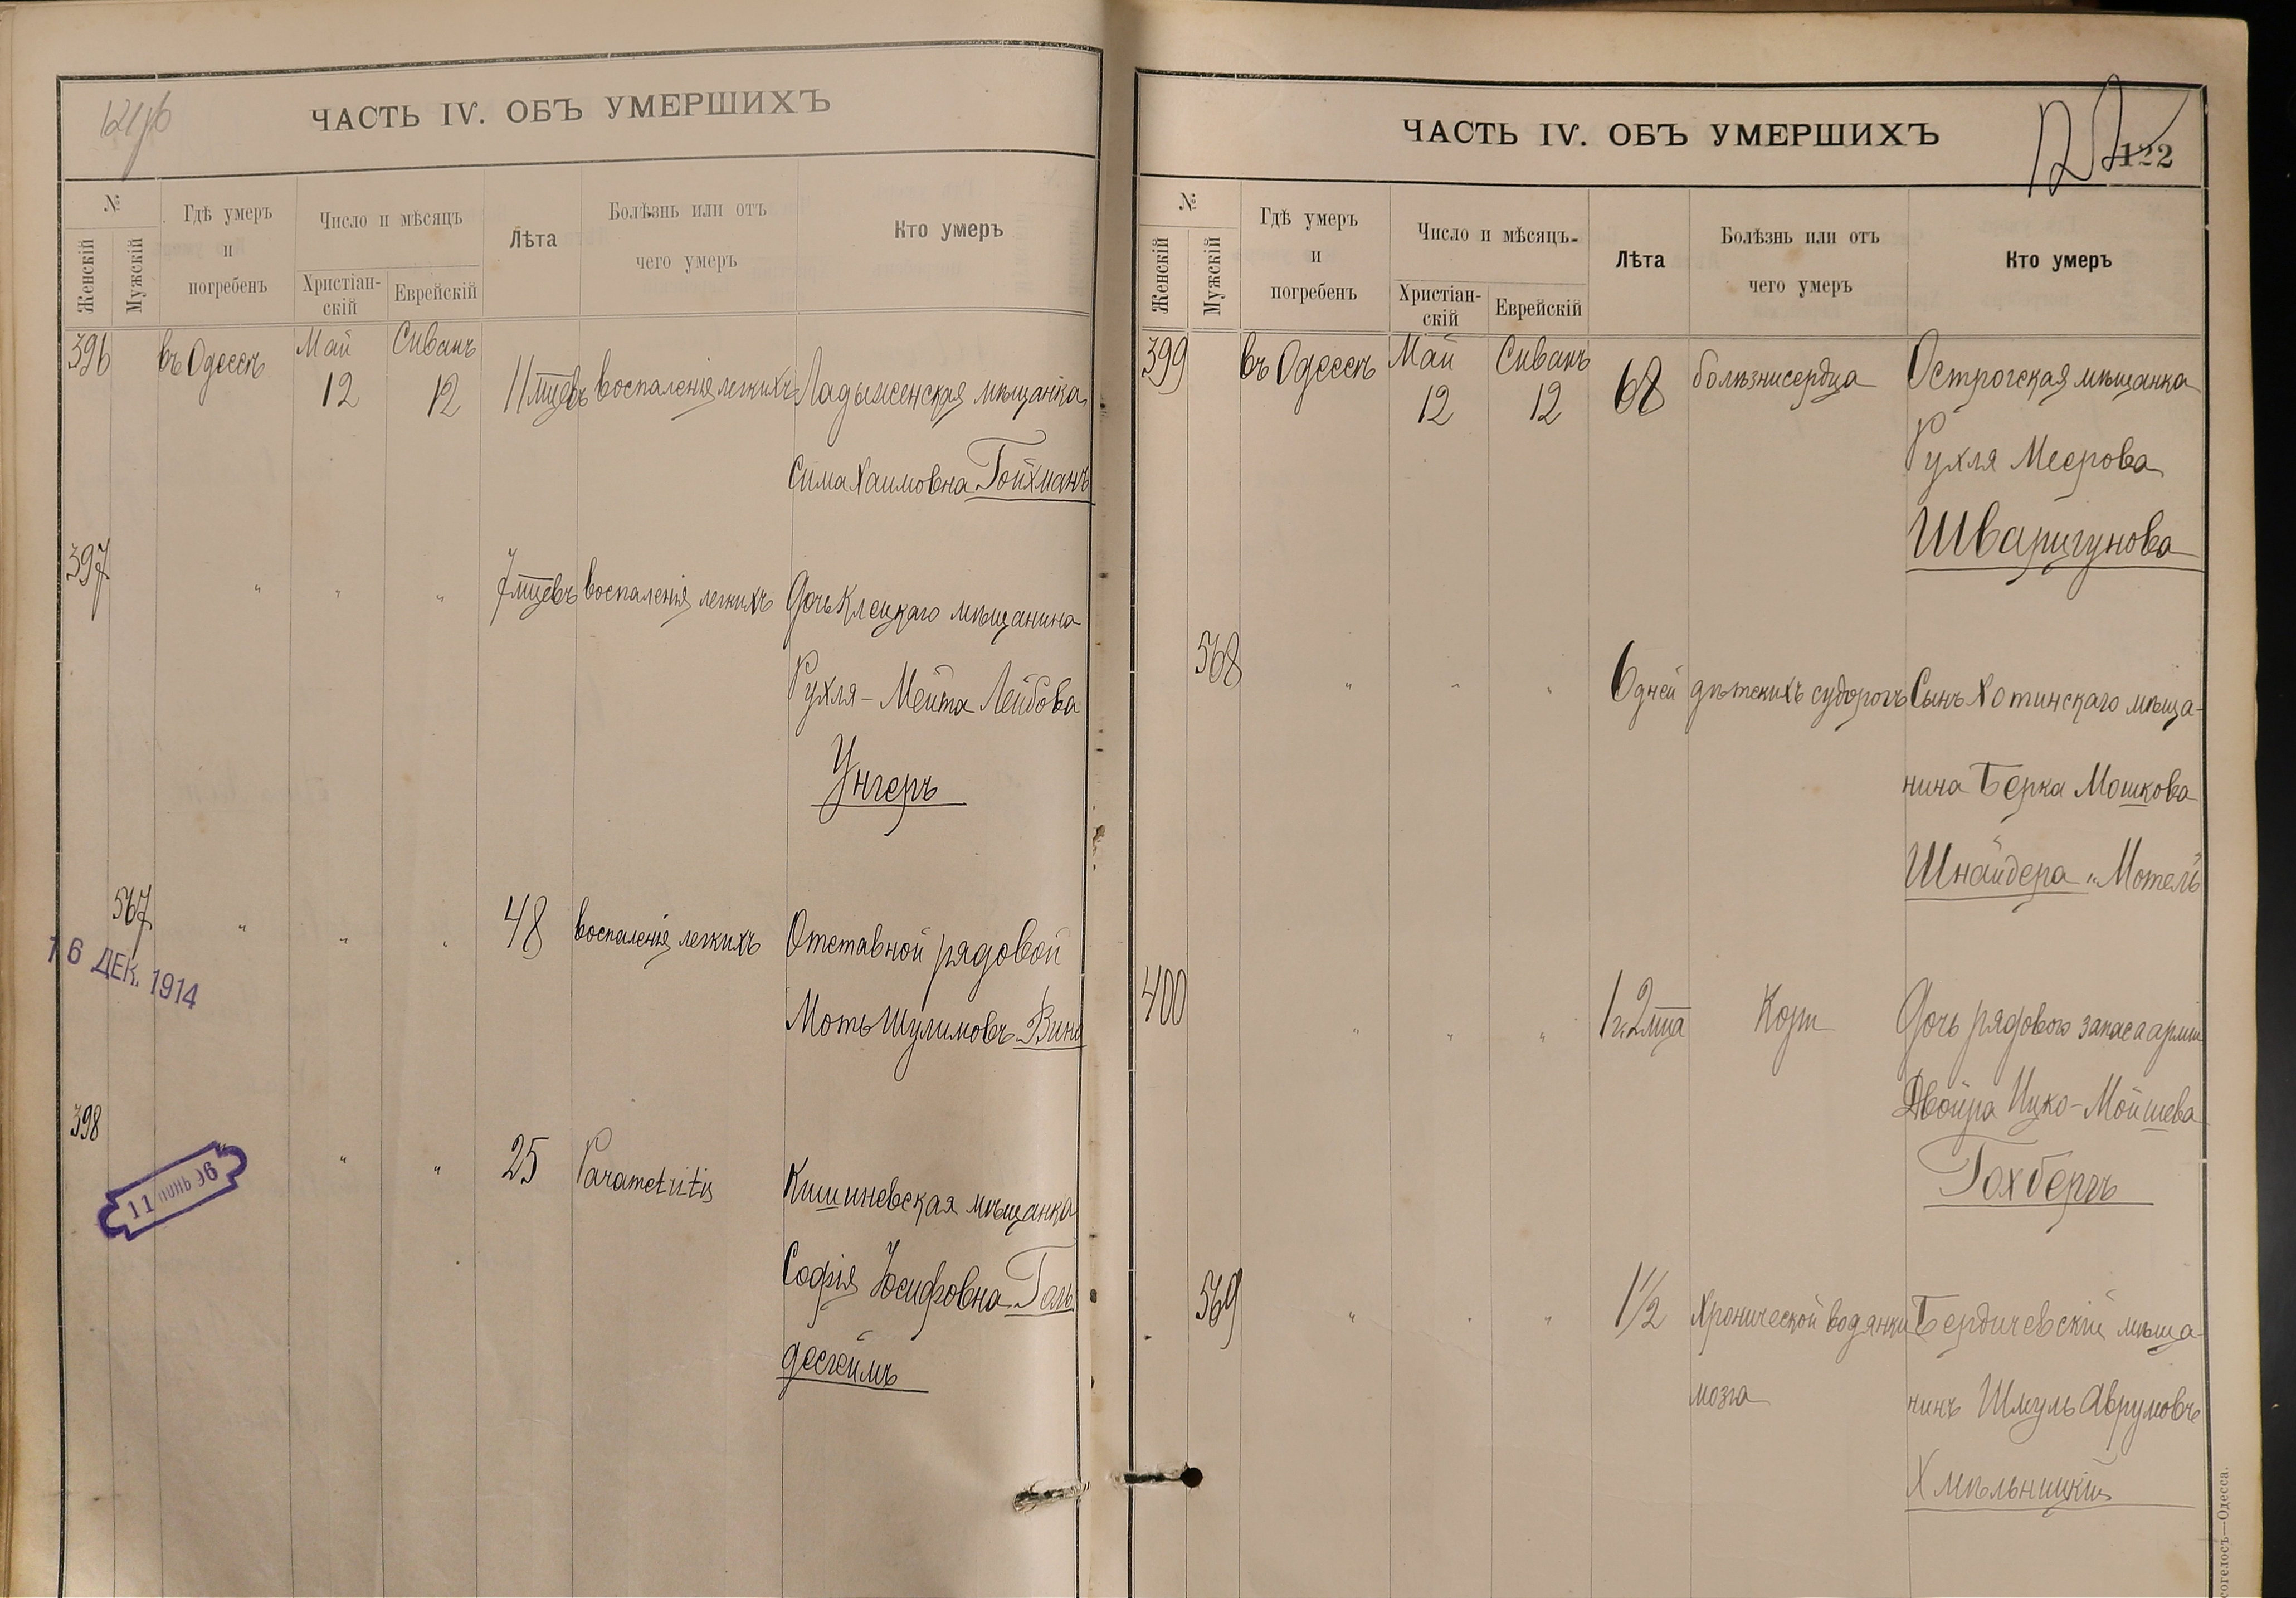 ЧАСТЬ IV. ОБЪ УМЕРШИХЪ
№
Женскій
Мужскій
Гдѣ умеръ
и
погребенъ
Число и мѣсяцъ
Христіан-
скій
Еврейскій
Лѣта
Болѣзнь или отъ
чего умеръ
Кто умеръ
396 въ Одессѣ Май Сиванъ
12 12 11 мцевъ воспаленія легкихъ Ладыженская мѣщанка
Сима Хаимовна Гойхманъ
397 " " " 7 мцевъ воспаленія легкихъ Дочь Клецкаго мѣщанина
Рухля-Мейта Лейбова
Унгеръ
567 " " " 48 воспаленія легкихъ Отставной рядовой
16 ДЕК. 1914
Моть Шулимовъ Винд
398 " " 25 Parametritis Кишиневская мѣщанка
11 ІЮНЬ 96
Софія Іосифовна Голь
десгеймъ
ЧАСТЬ IV. ОБЪ УМЕРШИХЪ
122
122
№
Женскій
Мужскій
Гдѣ умеръ
и
погребенъ
Число и мѣсяцъ
Христіан-
скій
Еврейскій
Лѣта
Болѣзнь или отъ
чего умеръ
Кто умеръ
399 въ Одессѣ Май Сиванъ
12 12 68 болѣзни сердца Острогская мѣщанка
Рухля Меерова
568 " " " 6 дней дѣтскихъ судорогъ Сынъ Хотинскаго мѣща-
нина Берка Мошкова
Шнайдера "Мотель"
400 " " " 1 г. 2 мца Кори Дочь рядового запаса арміи
Двойра Ицко-Мойшева
Гохбергъ
569 " " " 1 1/2 Хронической водянки Бердичевскій мѣща-
мозга нинъ Шмуль Аврумовъ
Хмѣльницкій
—Одесса.